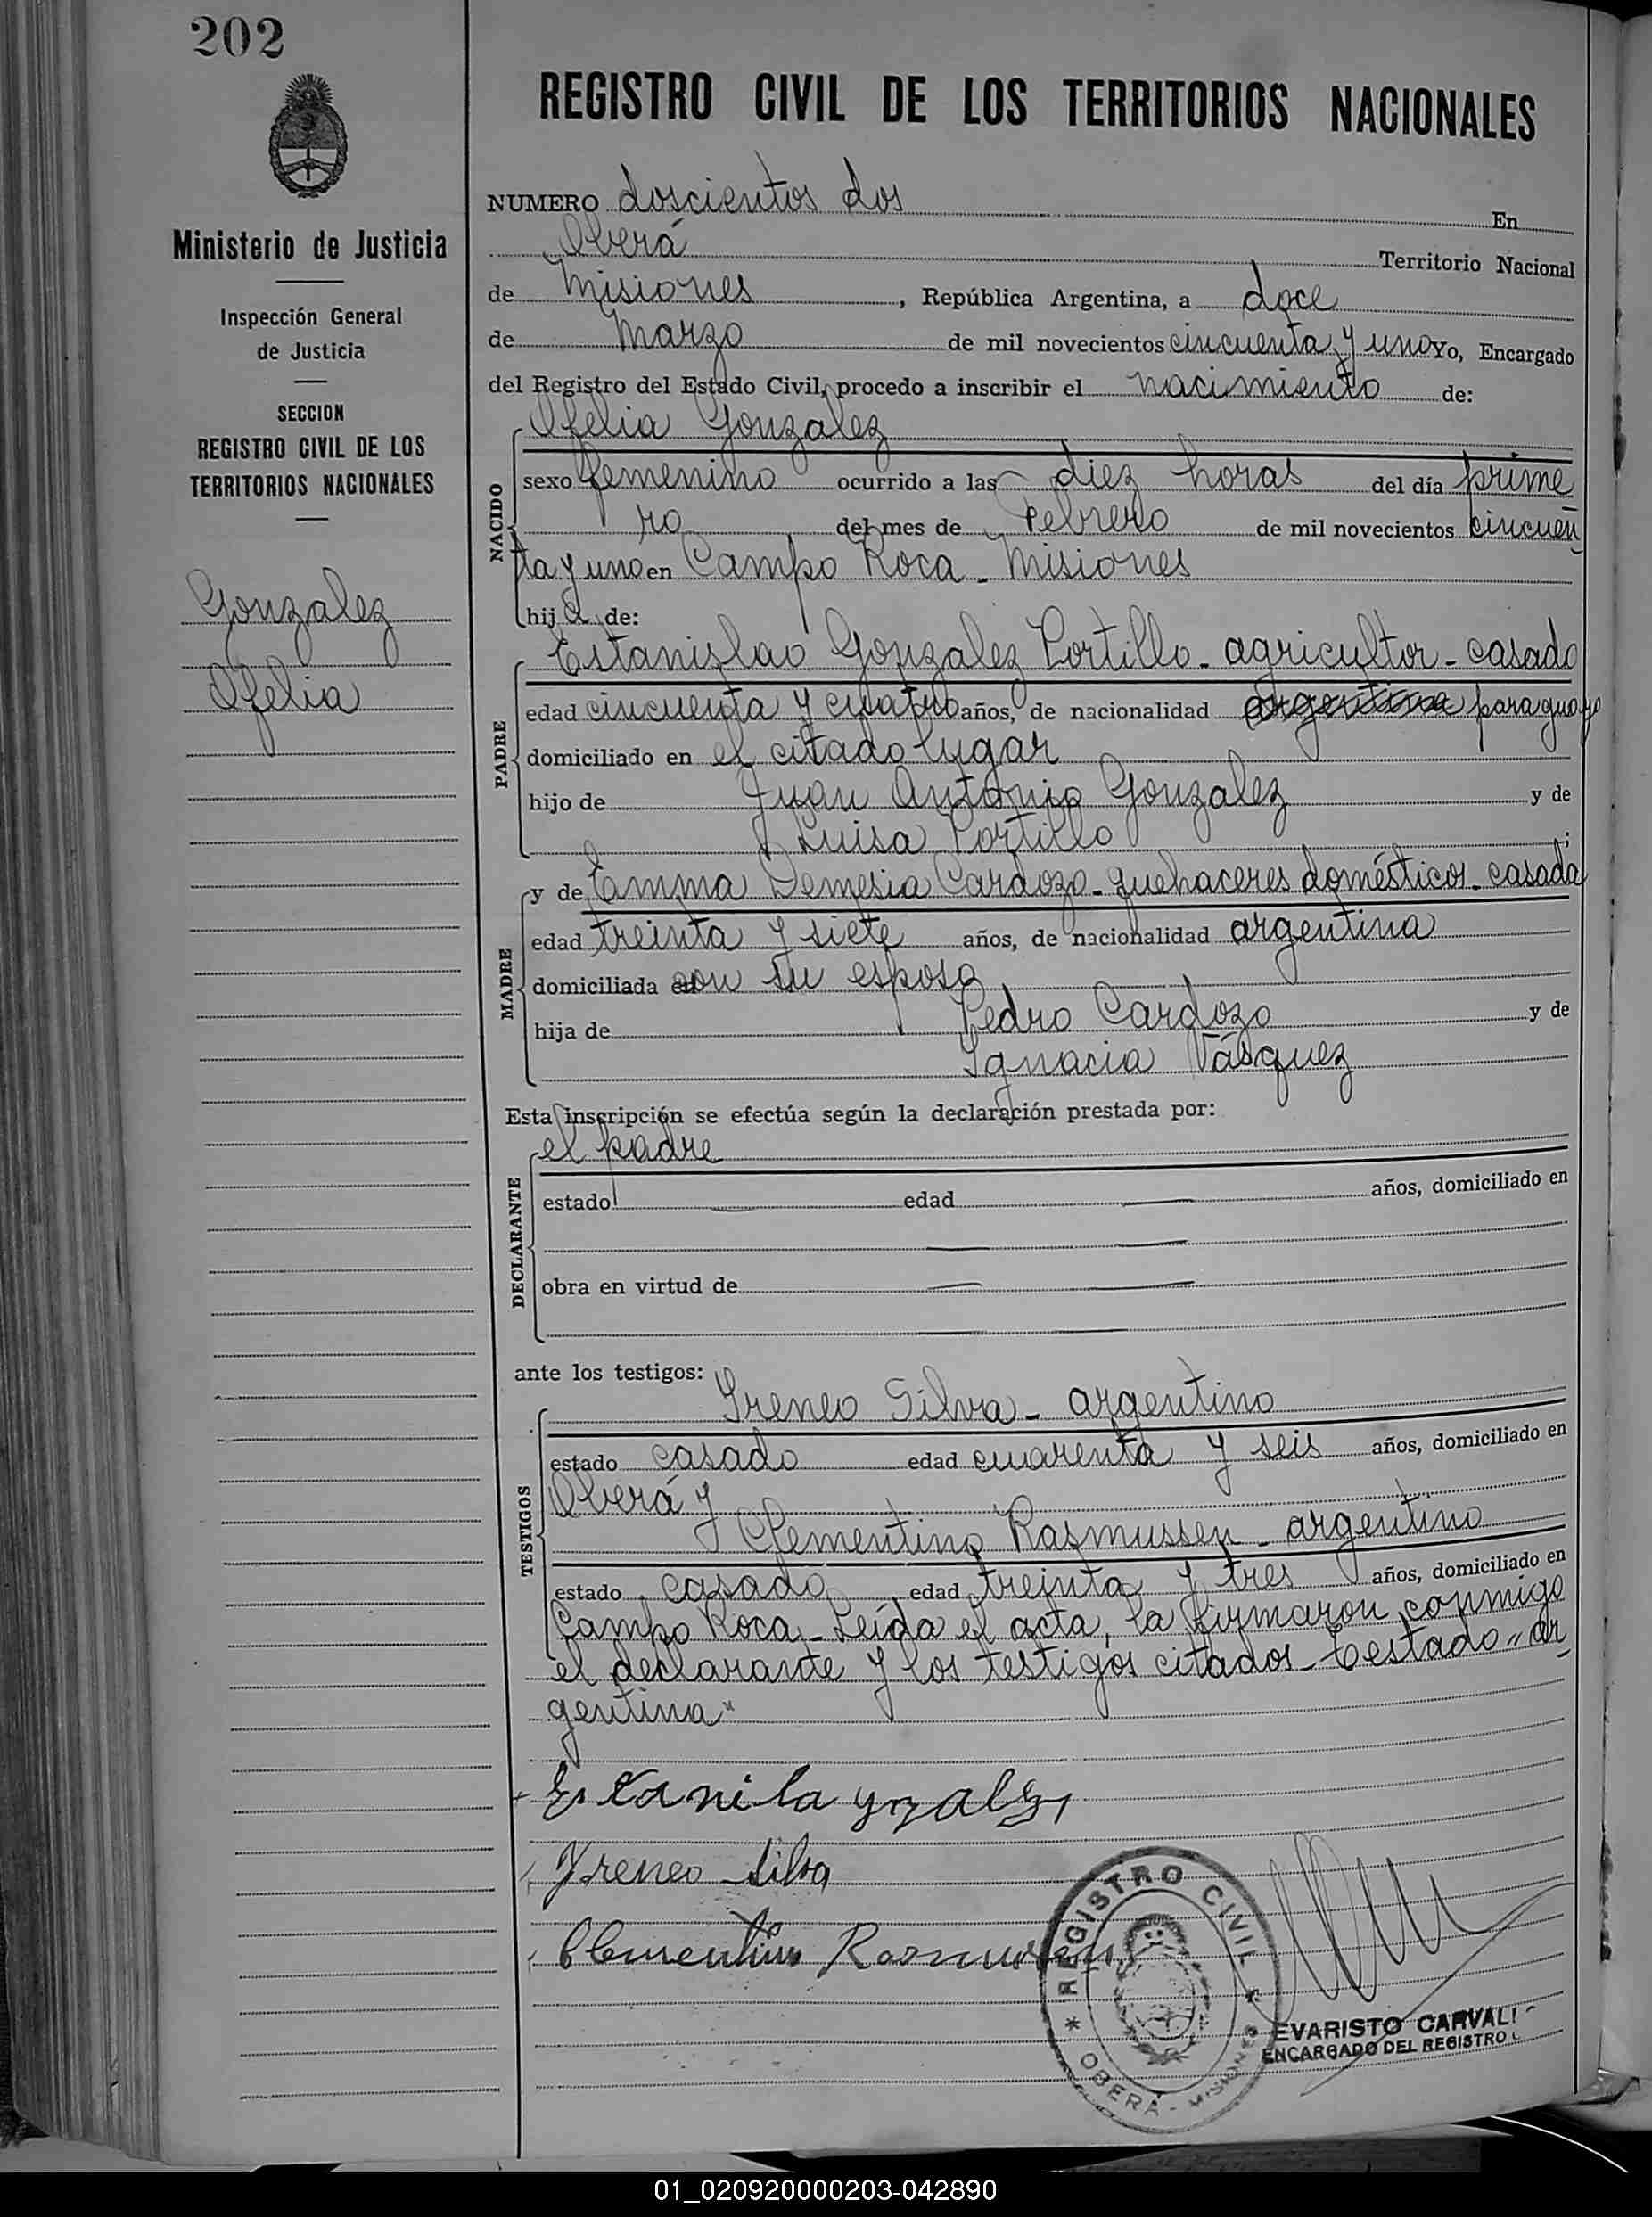 202
REGISTRO CIVIL DE LOS TERRITORIOS NACIONALES
Ministerio de Justicia
Inspección General
de Justicia
SECCION
REGISTRO CIVIL DE LOS
TERRITORIOS NACIONALES
Gonzalez
Ofelia
NUMERO doscientos dos En
Oberá Territorio Nacional
de Misiones, República Argentina, a doce
de Marzo de mil novecientos cincuenta y uno Yo, Encargado
del Registro del Estado Civil, procedo a inscribir el nacimiento de:
Ofelia Gonzalez
NACIDO
sexo femenino ocurrido a las diez horas del día prime
ro del mes de Febrero de mil novecientos cincuen
ta y uno en Campo Roca - Misiones
hija de:
Estanislao Gonzalez Portillo - agricultor - casado
PADRE
edad cincuenta y cuatro años, de nacionalidad argentina paraguayo
domiciliado en el citado lugar
hijo de Juan Antonio Gonzalez y de
Luisa Portillo ;
y de Emma Demesia Cardozo - quehaceres domésticos - casada
MADRE
edad treinta y siete años, de nacionalidad argentina
domiciliada con su esposo
hija de Pedro Cardozo y de
Ignacia Vásquez
Esta inscripción se efectúa según la declaración prestada por:
el padre
DECLARANTE
estado edad años, domiciliado en
obra en virtud de
ante los testigos:
Ireneo Silva - argentino
TESTIGOS
estado casado edad cuarenta y seis años, domiciliado en
Oberá y
Clementino Rasmussen - argentino
estado casado edad treinta y tres años, domiciliado en
Campo Roca - Leída el acta, la firmaron conmigo
el declarante y los testigos citados - Testado "ar
gentina"
Estanila gzalez
Yreneo Silva
Clementino Rasmussen
REGISTRO CIVIL
* OBERÁ - MISIONES *
EVARISTO CARVAL
ENCARGADO DEL REGISTRO
01_020920000203-042890